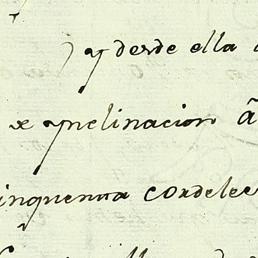 y desde ella
e ynclinacion â
inquenta cordele